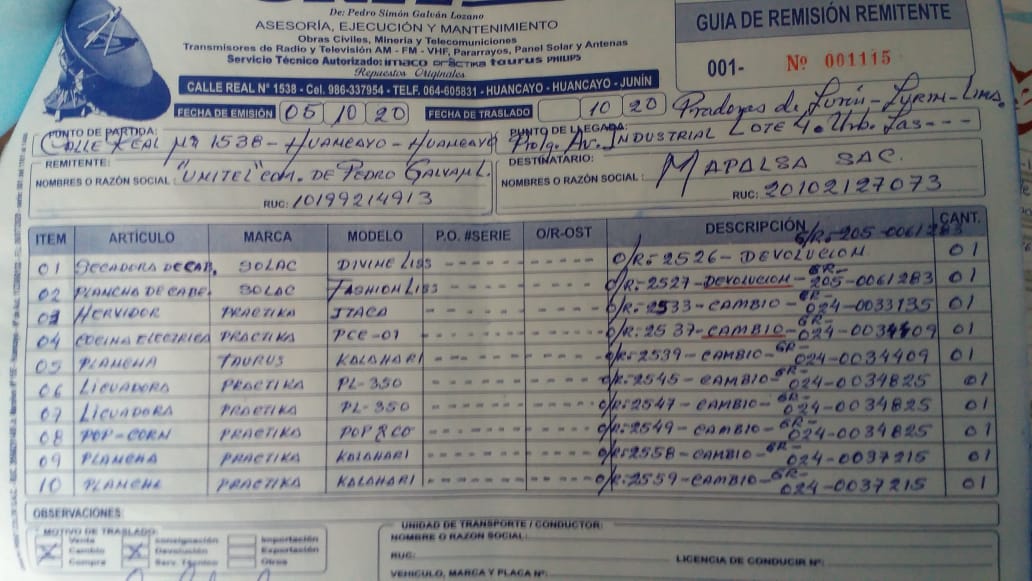 De: Pedro Simón Galván Lozano
ASESORÍA, EJECUCIÓN Y MANTENIMIENTO
Obras Civiles, Minería y Telecomunicaciones
Transmisores de Radio y Televisión AM - FM - VHF, Pararrayos, Panel Solar y Antenas
Servicio Técnico Autorizado: imaco práctika taurus PHILIPS
Repuestos Originales
CALLE REAL Nº 1538 - Cel. 986-337954 - TELF. 064-605831 - HUANCAYO - HUANCAYO - JUNÍN
GUIA DE REMISIÓN REMITENTE
001- Nº 001115
FECHA DE EMISIÓN 05 10 20 FECHA DE TRASLADO 10 20 Praderas de Lurín - Lurín - Lima.
PUNTO DE PARTIDA: CALLE REAL Nº 1538 - HUANCAYO - HUANCAYO
PUNTO DE LLEGADA: Prolg. Av. INDUSTRIAL LOTE 4. Urb. Las ---
REMITENTE:
NOMBRES O RAZÓN SOCIAL: "UNITEL" COM. DE PEDRO GALVAN L.
RUC: 10199214913
DESTINATARIO:
NOMBRES O RAZÓN SOCIAL: MAPALSA SAC.
RUC: 20102127073
ITEM ARTÍCULO MARCA MODELO P.O. #SERIE O/R-OST DESCRIPCIÓN CANT.
G/R.-205-0061283
01 SECADORA DE CAB. SOLAC DIVINE LISS ------ ------ O/R:-2526-DEVOLUCION 01
02 PLANCHA DE CABE. SOLAC FASHION LISS ------ ------ O/R:-2527-DEVOLUCION-GR-205-0061283 01
03 HERVIDOR PRACTIKA ITACA ------ ------ O/R:-2533-CAMBIO-GR-024-0033135 01
04 COCINA ELECTRICA PRACTIKA PCE-01 ------ ------ O/R:-2537-CAMBIO-GR-024-0034409 01
05 PLANCHA TAURUS KALAHARI ------ ------ O/R:-2539-CAMBIO-GR-024-0034409 01
06 LICUADORA PRACTIKA PL-350 ------ ------ O/R:-2545-CAMBIO-GR-024-0034825 01
07 LICUADORA PRACTIKA PL-350 ------ ------ O/R:-2547-CAMBIO-GR-024-0034825 01
08 POP-CORN PRACTIKA POP & CO ------ ------ O/R:-2549-CAMBIO-GR-024-0034825 01
09 PLANCHA PRACTIKA KALAHARI ------ ------ O/R:-2558-CAMBIO-GR-024-0037215 01
10 PLANCHA PRACTIKA KALAHARI ------ ------ O/R:-2559-CAMBIO-GR-024-0037215 01
OBSERVACIONES:
MOTIVO DE TRASLADO:
Venta Consignación Importación
X Cambio X Devolución Exportación
Compra Serv. Técnico Otros
UNIDAD DE TRANSPORTE / CONDUCTOR:
NOMBRE O RAZÓN SOCIAL:
RUC: LICENCIA DE CONDUCIR Nº:
VEHICULO, MARCA Y PLACA Nº: